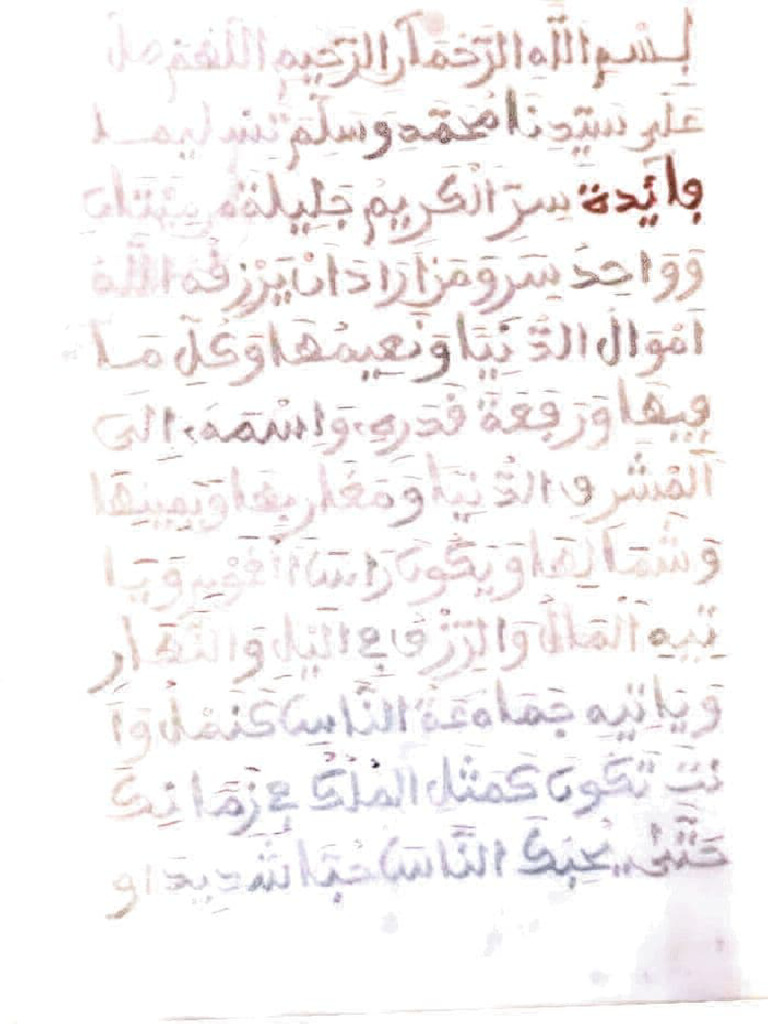 بِسْمِ اللَّهِ الرَّحْمَانِ الرَّحِيمِ اللَّهُمَّ صَلِّ
عَلَى سَيِّدِنَا مُحَمَّدٍ وَسَلِّمْ تَسْلِيمًا
فَائِدَة سِرّ الْكَرِيمِ جَلِيلَة
وَوَاحِدُ سِرٍ وَمَنْ اَرَادَ اَنْ يَرْزُقَهُ اللَّهُ
اَمْوَالَ الدُّنْيَا وَنَعِيمُهَا وَكُلِّ مَا
فِيهَا وَرِفْعَةَ قَدَرِهِ وَاسْمَهُ اِلَى
الْمَشْرِقِ الدُّنْيَا وَمَغَارِبِهَا وَيَمِينِهَا
وَشَمَالِهَا وَيَكُونُ رَاسَ الْقَوْمِ وَيَا
تِيهِ الْمَالُ وَالرِّزْقُ فِي الَّيْلِ وَالنَّهَارِ
وَيَاتِيهِ جَمَاعَةُ النَّاسِ كَنَمْلُ وَاَ
نْتَ تَكُونُ كَمَثَلِ الْمَلِكِ فِي زَمَانِكَ
حَتَّى يُحِبَّكَ النَّاسُ حُبًّا شَدِيدًا وَ